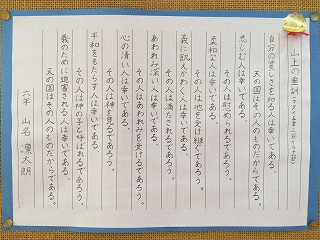 山上の垂訓（マタイ五章三節から十節）
自分の貧しさを知る人は幸いである、
天の国はその人のものだからである。
悲しむ人は幸いである、
その人は慰められるであろう。
柔和な人は幸いである、
その人は地を受け継ぐであろう。
義に飢えかわく人は幸いである、
その人は満たされるであろう。
あわれみ深い人は幸いである、
その人はあわれみを受けるであろう。
心の清い人は幸いである、
その人は神を見るであろう。
平和をもたらす人は幸いである
その人は神の子と呼ばれるであろう。
義のために迫害される人は幸いである、
天の国はその人のものだからである。
六年 山名 凜太朗